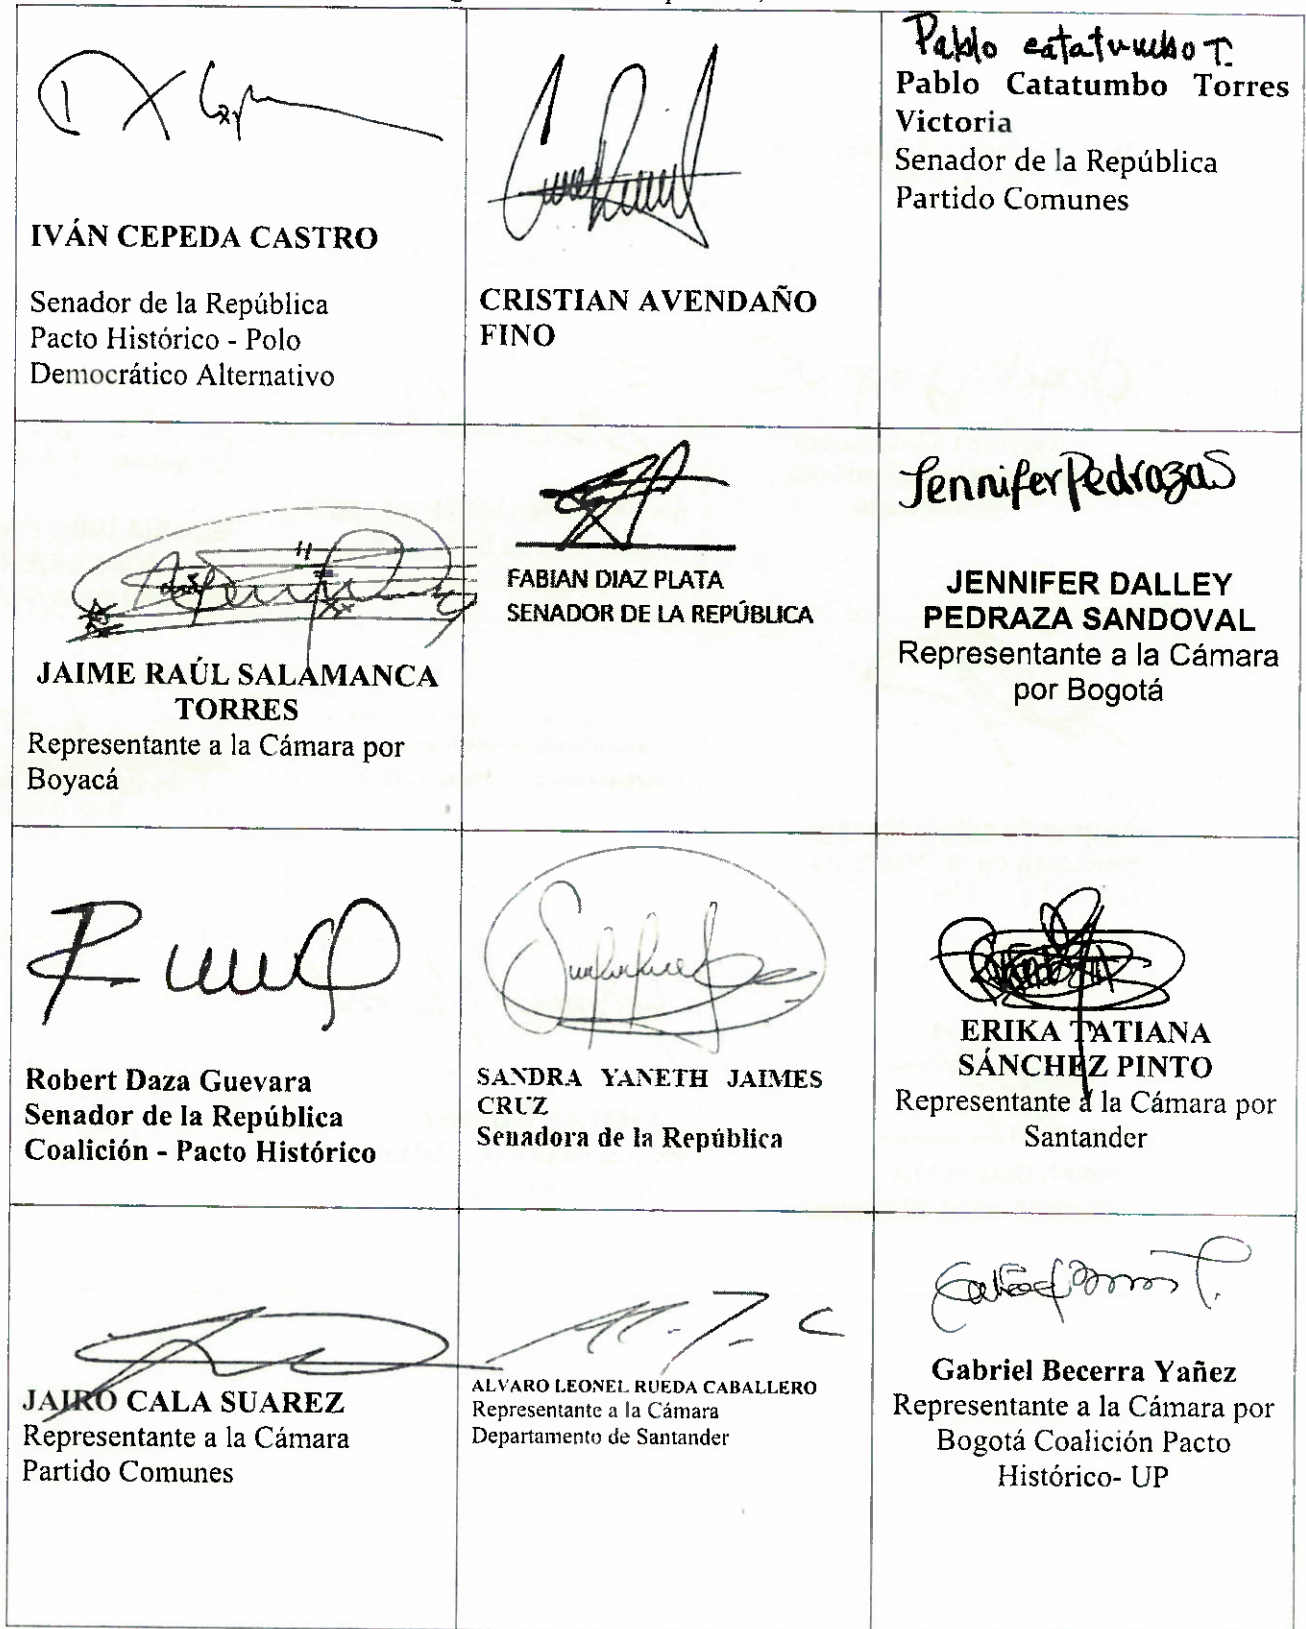 IVÁN CEPEDA CASTRO
Senador de la República
Pacto Histórico - Polo
Democrático Alternativo
CRISTIAN AVENDAÑO
FINO
Pablo Catatumbo T.
Pablo Catatumbo Torres
Victoria
Senador de la República
Partido Comunes
JAIME RAÚL SALAMANCA
TORRES
Representante a la Cámara por
Boyacá
FABIAN DIAZ PLATA
SENADOR DE LA REPÚBLICA
Jennifer Pedraza S
JENNIFER DALLEY
PEDRAZA SANDOVAL
Representante a la Cámara
por Bogotá
Robert Daza Guevara
Senador de la República
Coalición - Pacto Histórico
SANDRA YANETH JAIMES
CRUZ
Senadora de la República
ERIKA TATIANA
SÁNCHEZ PINTO
Representante a la Cámara por
Santander
JAIRO CALA SUAREZ
Representante a la Cámara
Partido Comunes
ALVARO LEONEL RUEDA CABALLERO
Representante a la Cámara
Departamento de Santander
Gabriel Becerra Yañez
Representante a la Cámara por
Bogotá Coalición Pacto
Histórico- UP